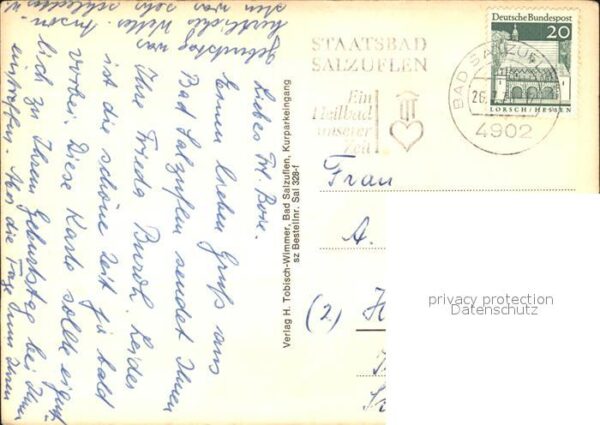 Liebes Frl. Bose.
Einen lieben Gruß aus
Bad Salzuflen sendet Ihnen
Ihre Frieda Burch. Leider
ist die schöne Zeit zu bald
vorbei. Diese Karte sollte eigent-
lich zu Ihrem Geburtstag bei Ihnen
eintreffen. Aber die Tage
Geburtstag was
herrliches Wetter.
Verlag H. Tobisch-Wimmer, Bad Salzuflen, Kurparkeingang
sz Bestellnr. Sal 328-f
STAATSBAD
SALZUFLEN
Ein
Heilbad
unserer
Zeit
BAD SALZUFLEN
26.
4902
Deutsche Bundespost
20
LORSCH/HESSEN
Frau
A.
(2)
privacy protection
Datenschutz